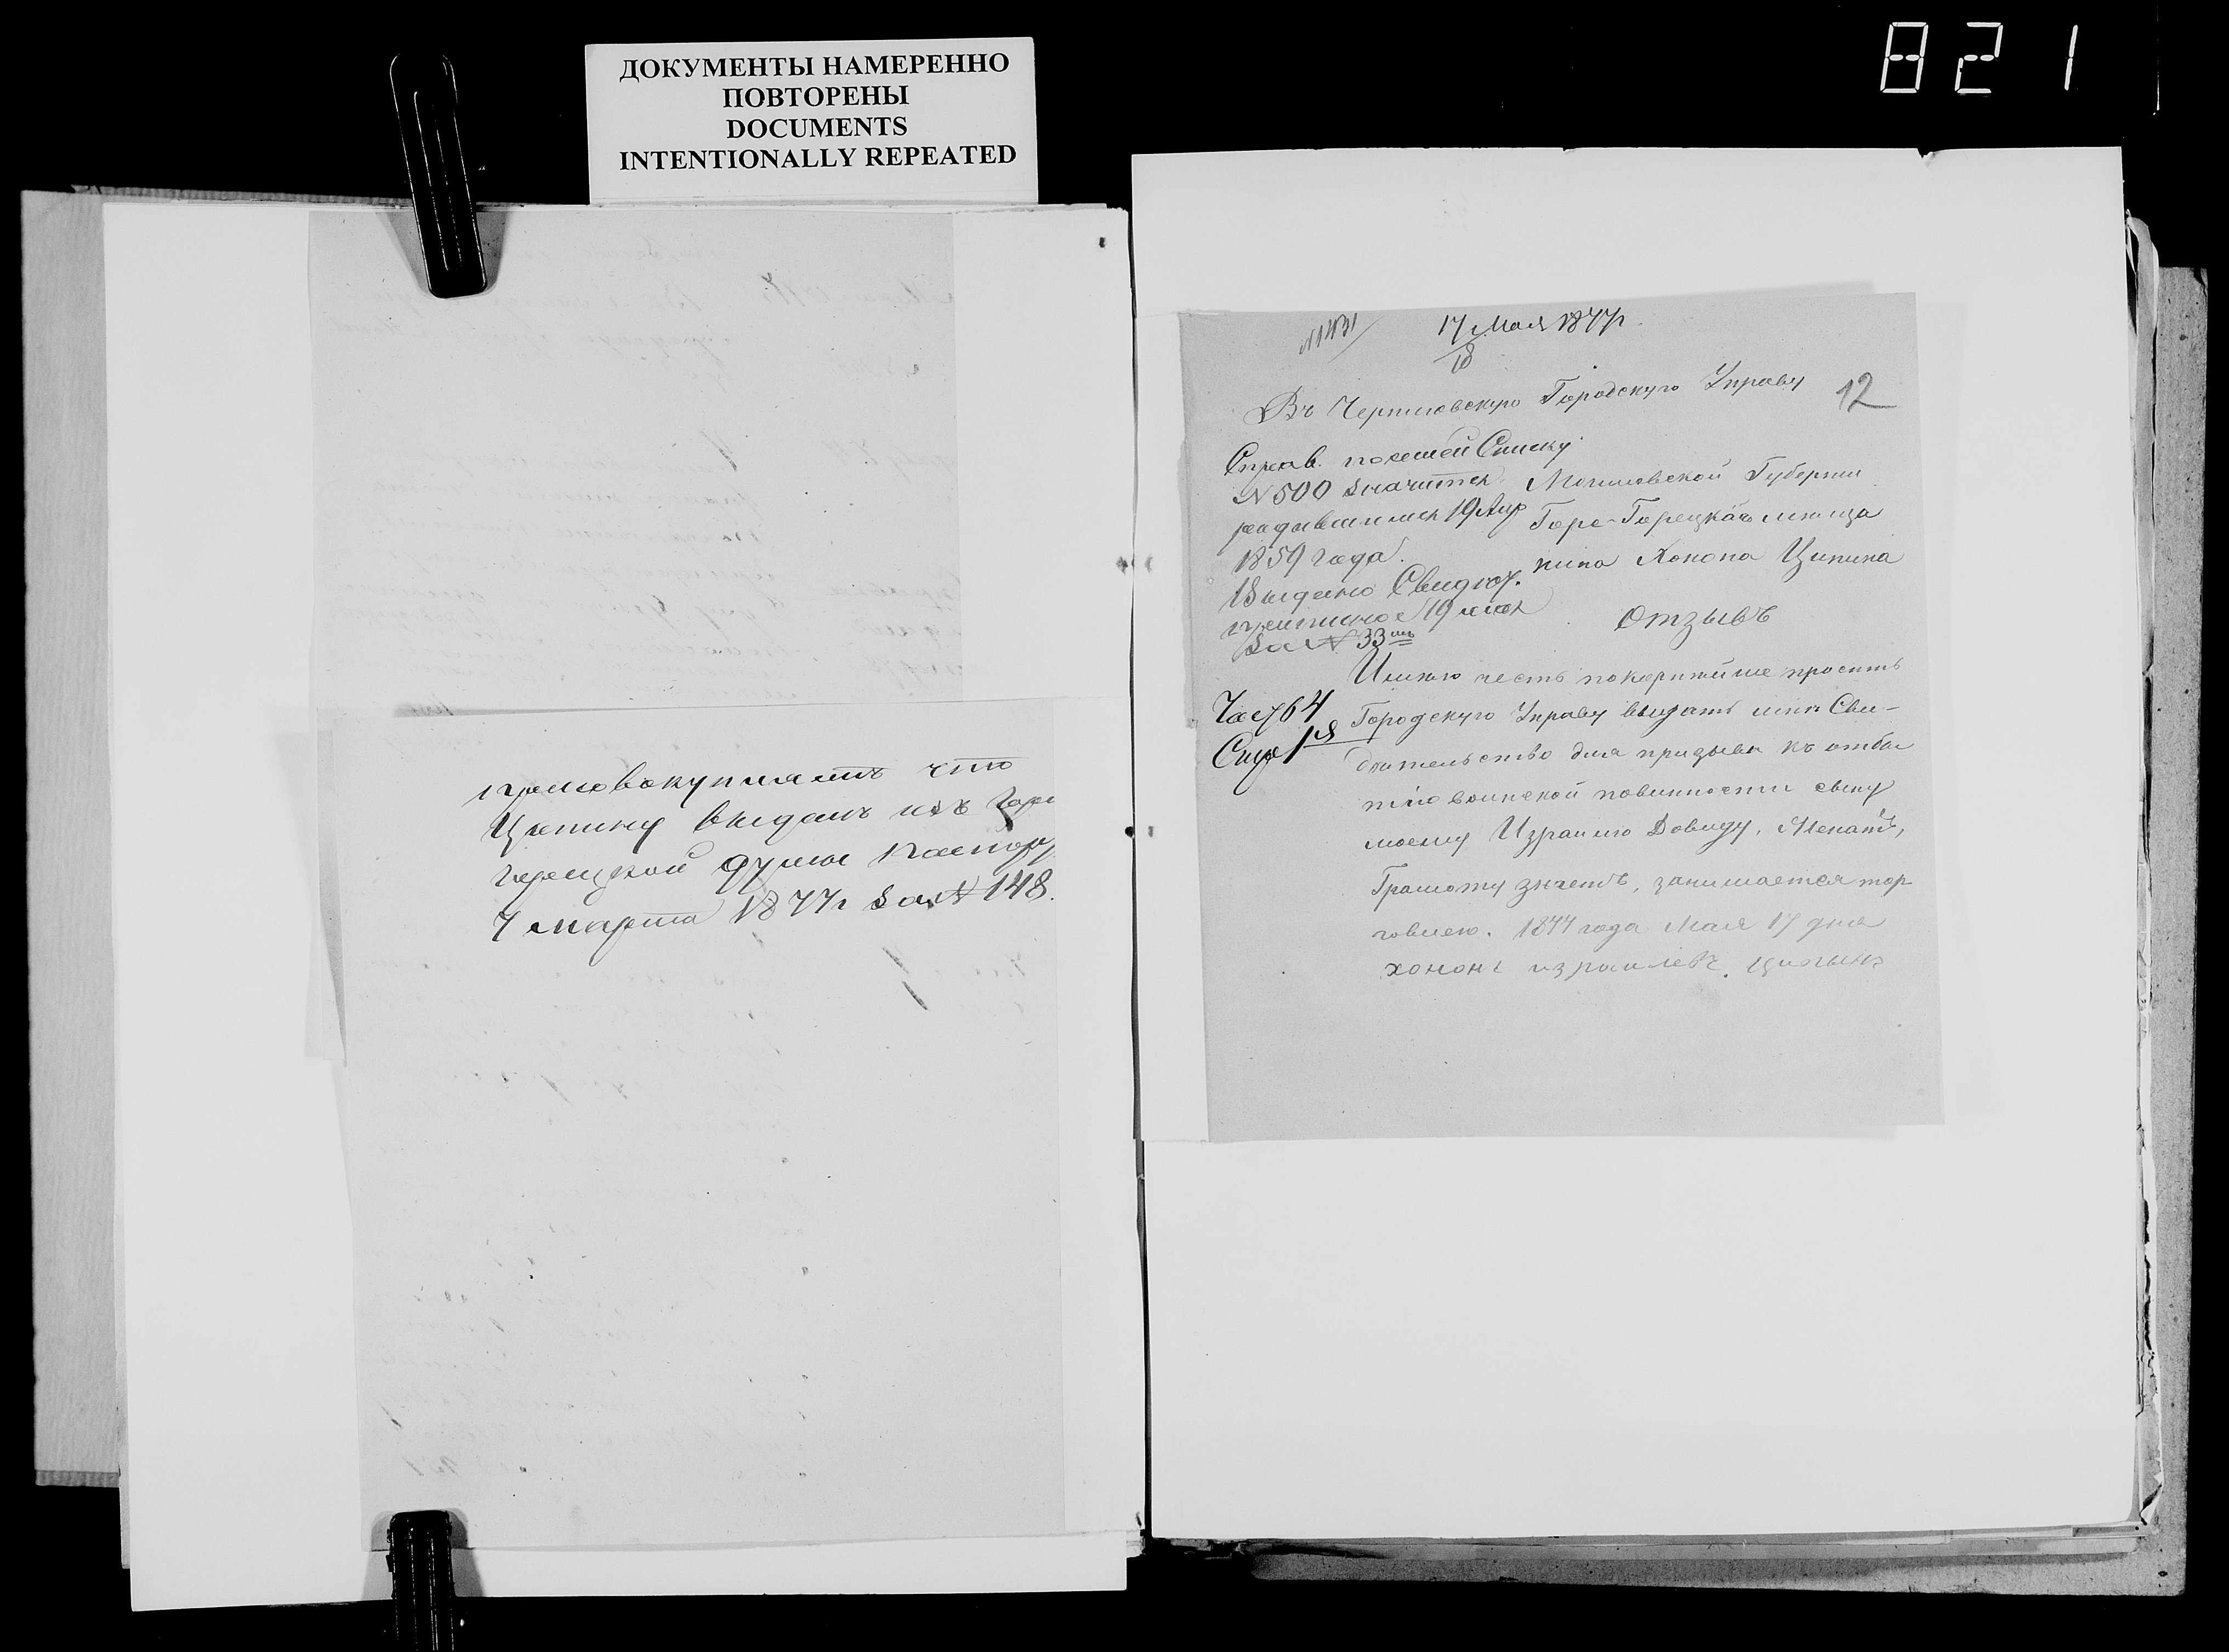 ДОКУМЕНТЫ НАМЕРЕННО
ПОВТОРЕНЫ
DOCUMENTS
INTENTIONALLY REPEATED
821
присовокупляетъ что
Ципину выданъ изъ Горе
горецкой думы паспортъ
7 марта 1877 г за № 148.
17 Мая 1877 г.
18
12
Въ Черниговскую Городскую Управу
Справ. посемей Списку
№ 500 значится
родившимся 19 Апр
1859 года.
Выдано Свидет.
приписное 19 мая
за № 33
Могилевской Губернии
Горе-Горецкаго мѣща
нина Хонона Ципина
Отзывъ
Имѣю честь покорнѣйше просить
Городскую Управу выдать мнѣ Сви-
дѣтельство для призыва къ отбы
тію воинской повинности сыну
моему Израилю Довиду, Женатъ,
Грамоту знаетъ, занимается тор
говлею. 1877 года Мая 17 дня
хононъ израилевъ ципинъ
Уч 64
1я